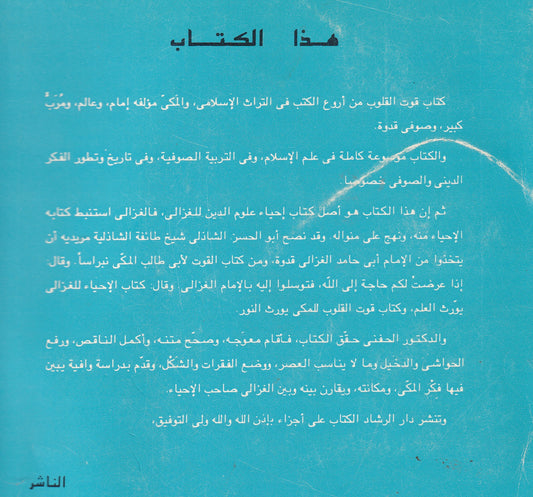 هذا الكتاب
كتاب قوت القلوب من أروع الكتب فى التراث الإسلامى، والمَكىّ مؤلفه إمام، وعالم، ومُرَبٍّ
كبير، وصوفى قدوة.
والكتاب موسوعة كاملة فى علم الإسلام، وفى التربية الصوفية، وفى تاريخ وتطور الفكر
الدينى والصوفى خصوصا.
ثم إن هذا الكتاب هو أصل كتاب إحياء علوم الدين للغزالى، فالغزالى استنبط كتابه
الإحياء منه، ونهج على منواله. وقد نصح أبو الحسن الشاذلى شيخ طائفة الشاذلية مريديه أن
يتخذوا من الإمام أبى حامد الغزالى قدوة، ومن كتاب القوت لأبى طالب المكّى نبراساً. وقال:
إذا عرضتْ لكم حاجة إلى اللّه، فتوسلوا إليه بالإمام الغزالى. وقال: كتاب الإحياء للغزالى
يورّث العلم، وكتاب قوت القلوب للمكى يورث النور.
والدكتور الحفنى حقّق الكتاب، فأقام معوَجه، وصحّح متنه، وأكمل الناقص، ورفع
الحواشى والدخيل وما لا يناسب العصر، ووضع الفقرات والشَكْل، وقدّم بدراسة وافية يبين
فيها فِكْر المكّى، ومكانته، ويقارن بينه وبين الغزالى صاحب الإحياء.
وتنشر دار الرشاد الكتاب على أجزاء بإذن الله والله ولى التوفيق،
الناشر